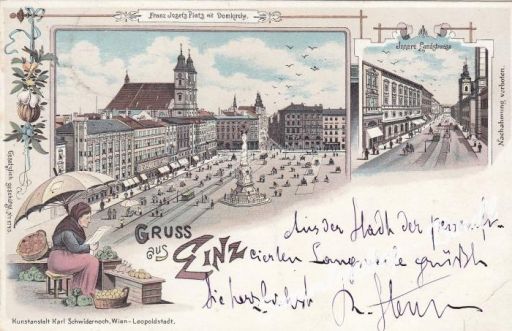 Franz Josefs Platz mit Domkirche.
Innere Landstrasse
Nachahmung verboten.
Gesetzlich geschützt
GRUSS
aus LINZ
Aus der Stadt der personifi-
cierten Langweile grüßt
Sie herzlichst
Kunstanstalt Karl Schwidernoch, Wien-Leopoldstadt.